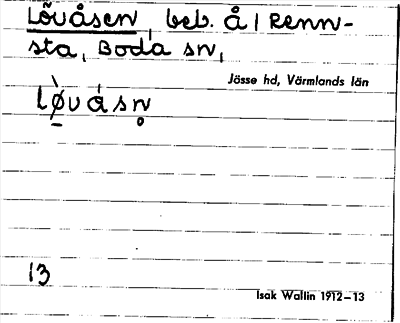 Lövåsen, beb. å / Renn-
sta, Boda sn,
Jösse hd, Värmlands län
Lø̀vásn̥
13
Isak Wallin 1912–13